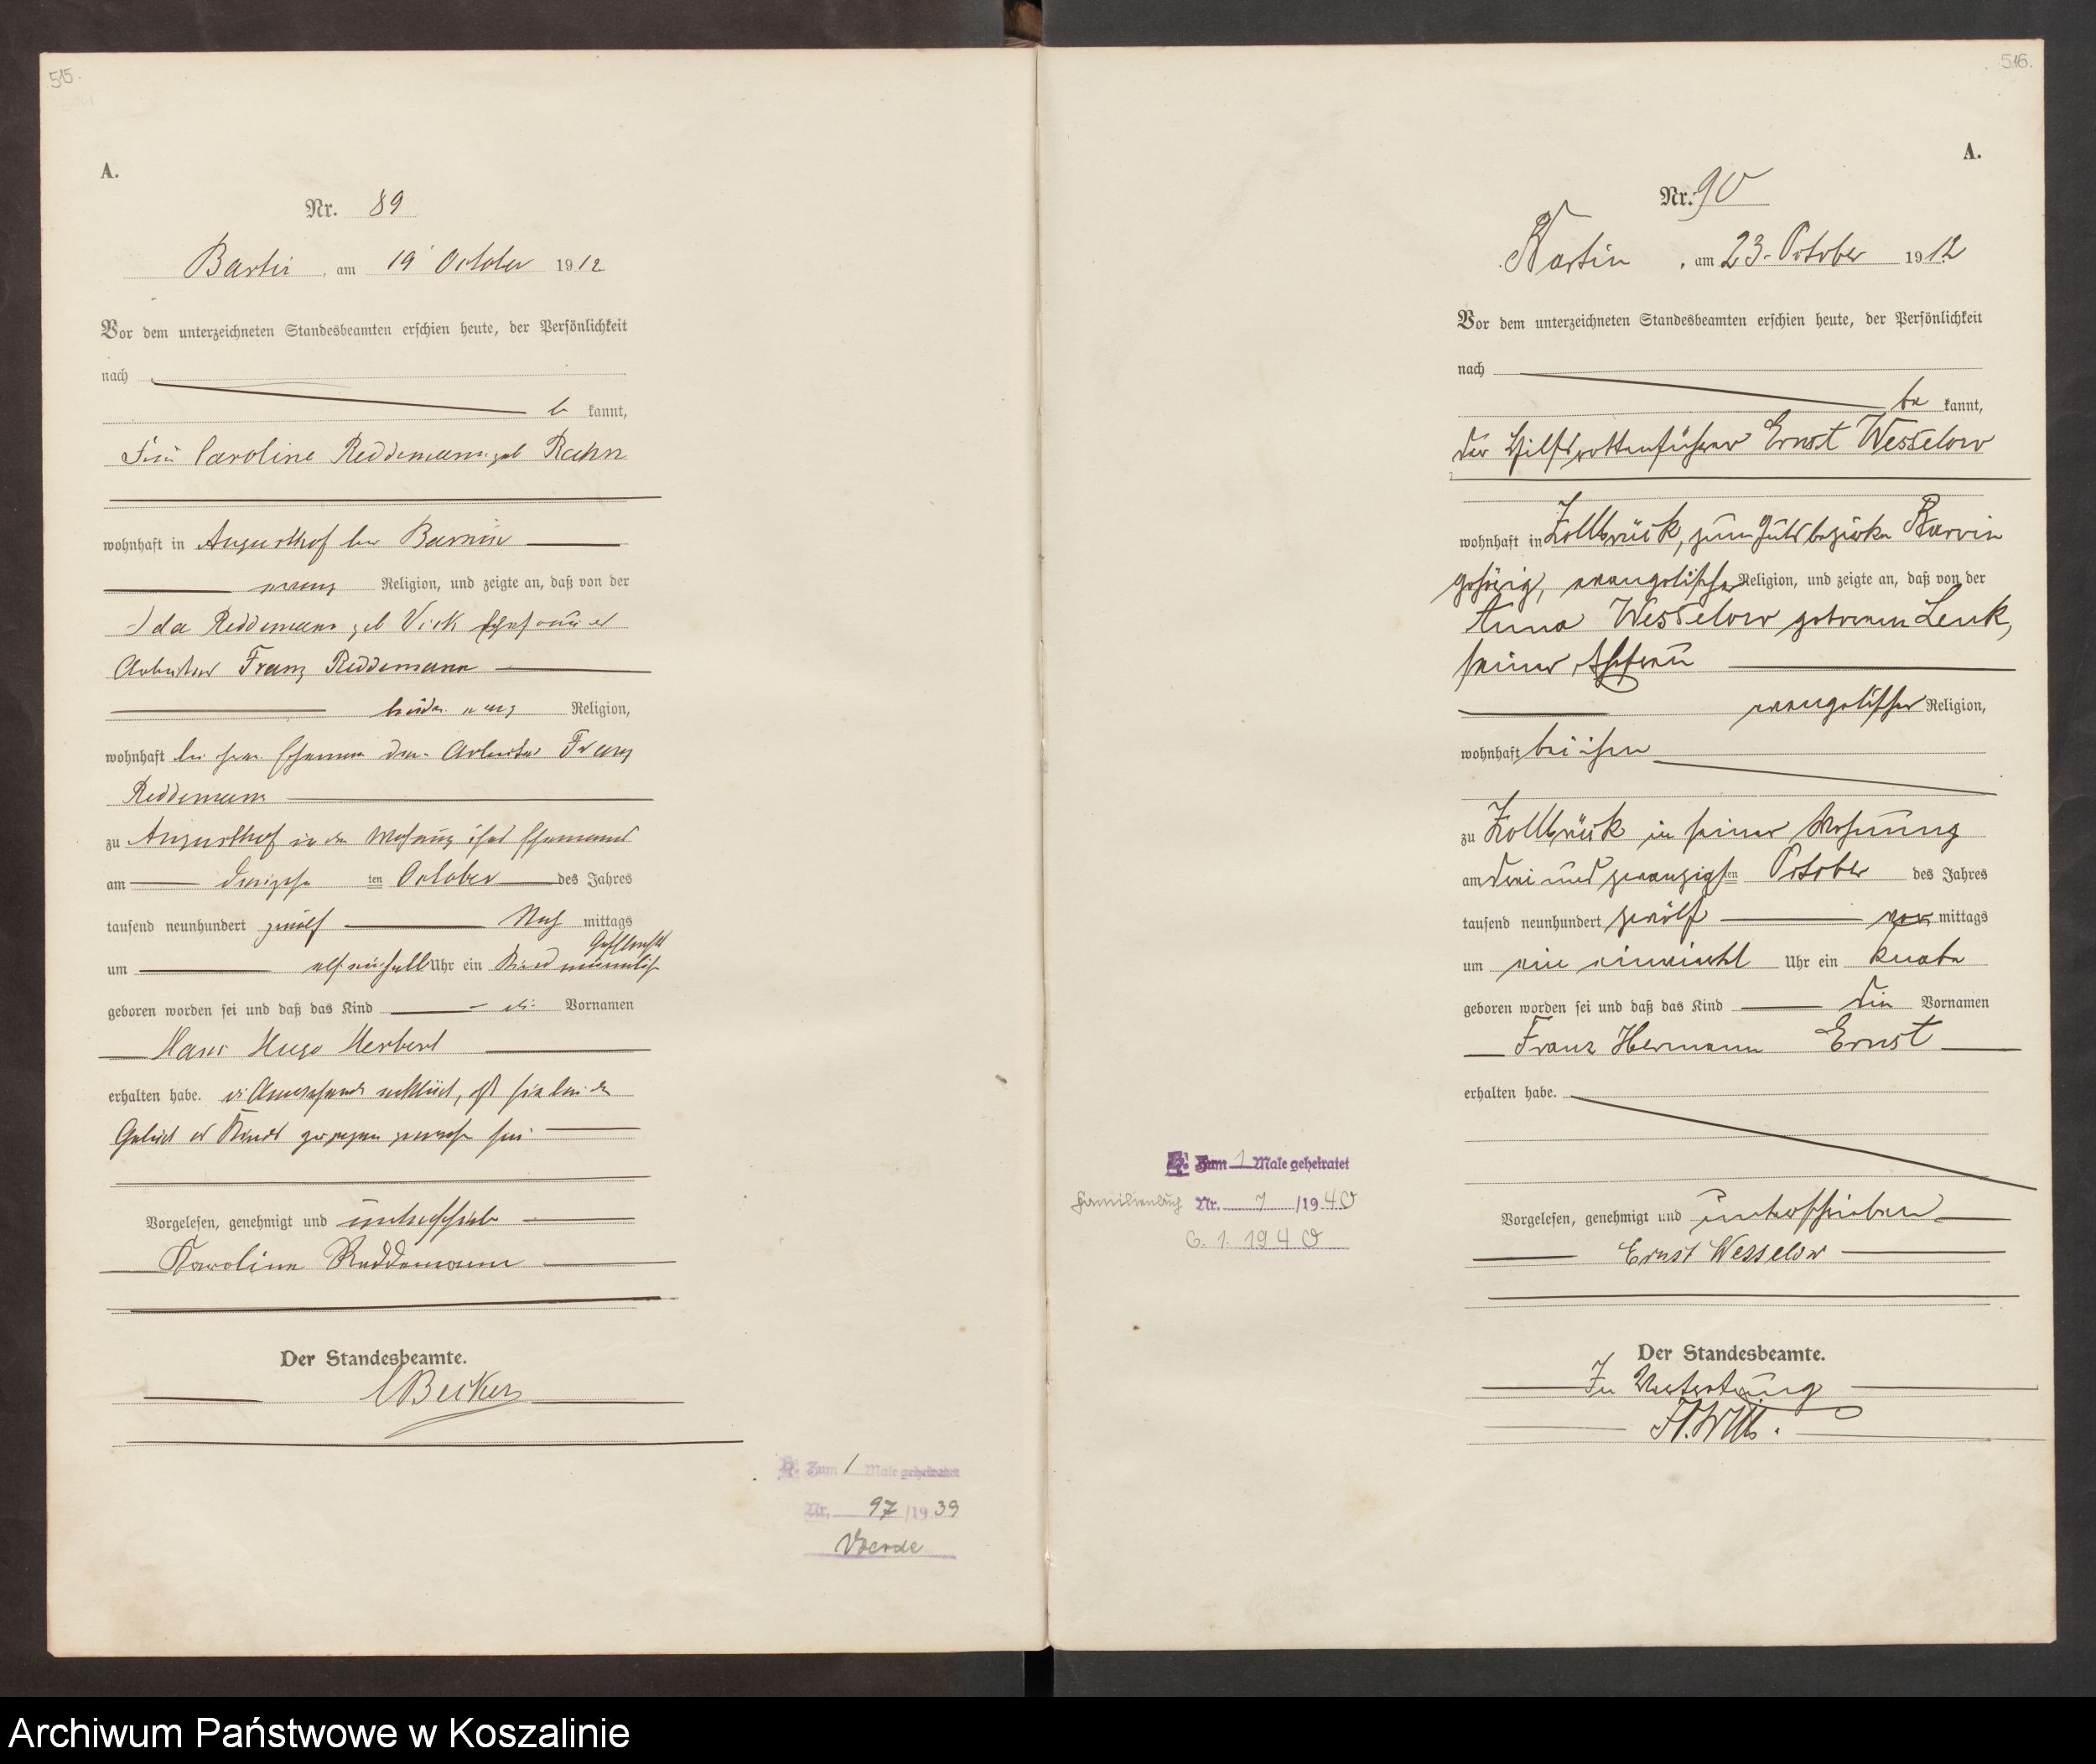 515.
A.
Nr. 89
Bartin, am 19 October 1912
Vor dem unterzeichneten Standesbeamten erschien heute, der Persönlichkeit
nach
be kannt,
Frau Caroline Reddemann geb Rahn
wohnhaft in Augusthof bei Barnin
evang Religion, und zeigte an, daß von der
Ida Reddemann geb Vick Ehefrau des
Arbeiters Franz Reddemann
beide evang Religion,
wohnhaft bei ihrem Ehemann dem Arbeiter Franz
Reddemann
zu Augusthof in der Wohnung ihres Ehemannes
am ten October des Jahres
tausend neunhundert zwölf Nach mittags
um elf einhalb Uhr ein Kind männlich
Geschlechts
geboren worden sei und daß das Kind die Vornamen
Hans Hugo Herbert
erhalten habe. die Anzeigende erklärt, daß sie bei der
Geburt des Kindes zugegen gewesen sei
Vorgelesen, genehmigt und unterschrieben
Karoline Reddemann
Der Standesbeamte.
CBecker
H. Zum 1 Male geheiratet
Nr. 97/1939
Voerde
516.
A.
Nr. 90
Bartin, am 23. October 1912
Vor dem unterzeichneten Standesbeamten erschien heute, der Persönlichkeit
nach
be kannt,
der Hilfsrottenführer Ernst Wesselow
wohnhaft in Zollbrück, zum Gutsbezirke Barvin
gehörig, evangelischer Religion, und zeigte an, daß von der
Anna Wesselow geborenen Lenk,
seiner Ehefrau
evangelischer Religion,
wohnhaft bei ihm
zu Zollbrück in seiner Wohnung
am drei und zwanzigsten October des Jahres
tausend neunhundert zwölf vor mittags
um ein einviertel Uhr ein Knabe
geboren worden sei und daß das Kind die Vornamen
Franz Hermann Ernst
erhalten habe.
Vorgelesen, genehmigt und unterschrieben
Ernst Wesselow
Der Standesbeamte.
In Vertretung
H. Zum 1 Male geheiratet
Familienbuch Nr. 7/1940
6. 1. 1940
Archiwum Państwowe w Koszalinie